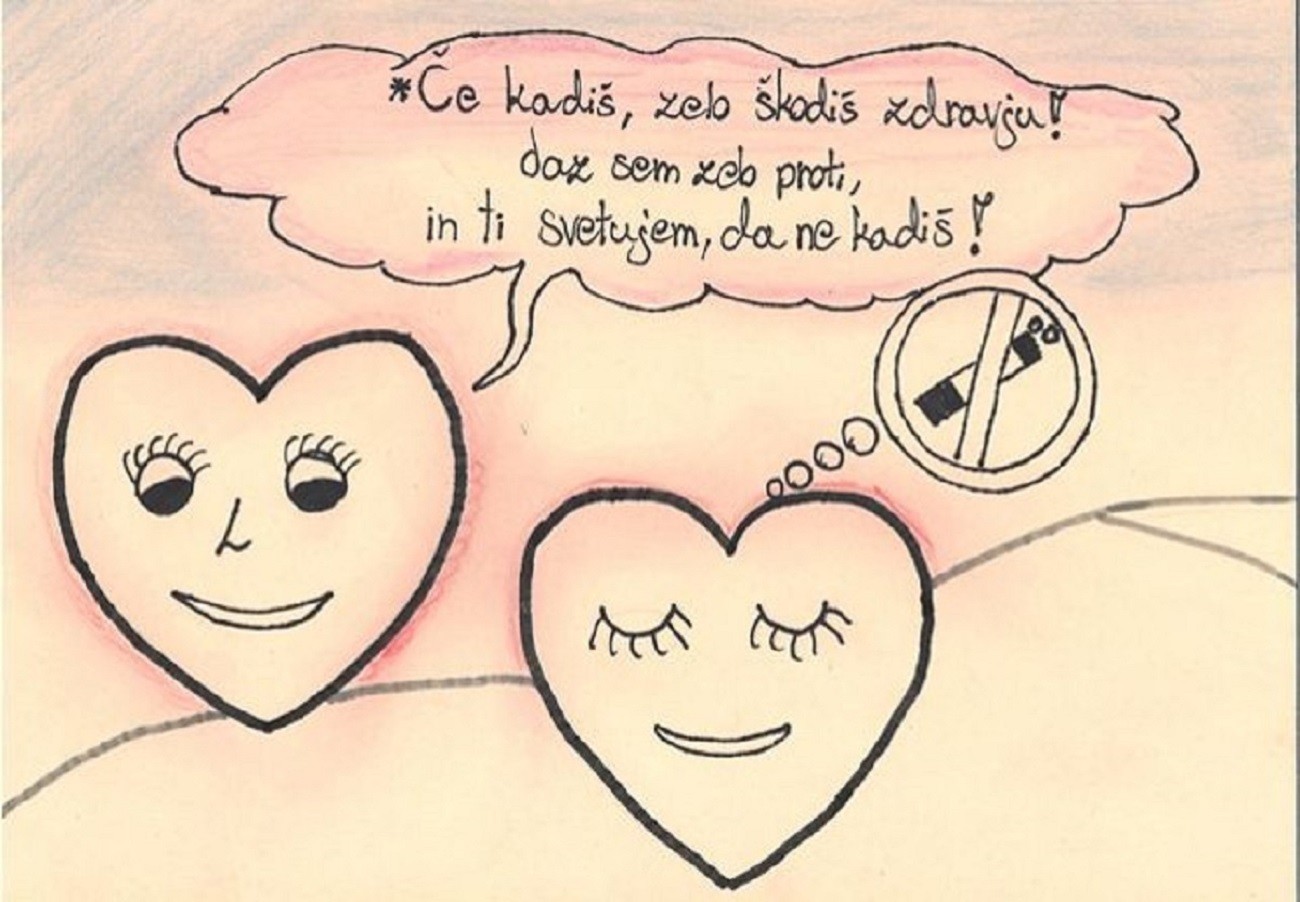 *Če kadiš, zelo škodiš zdravju!
Jaz sem zelo proti,
in ti svetujem, da ne kadiš!